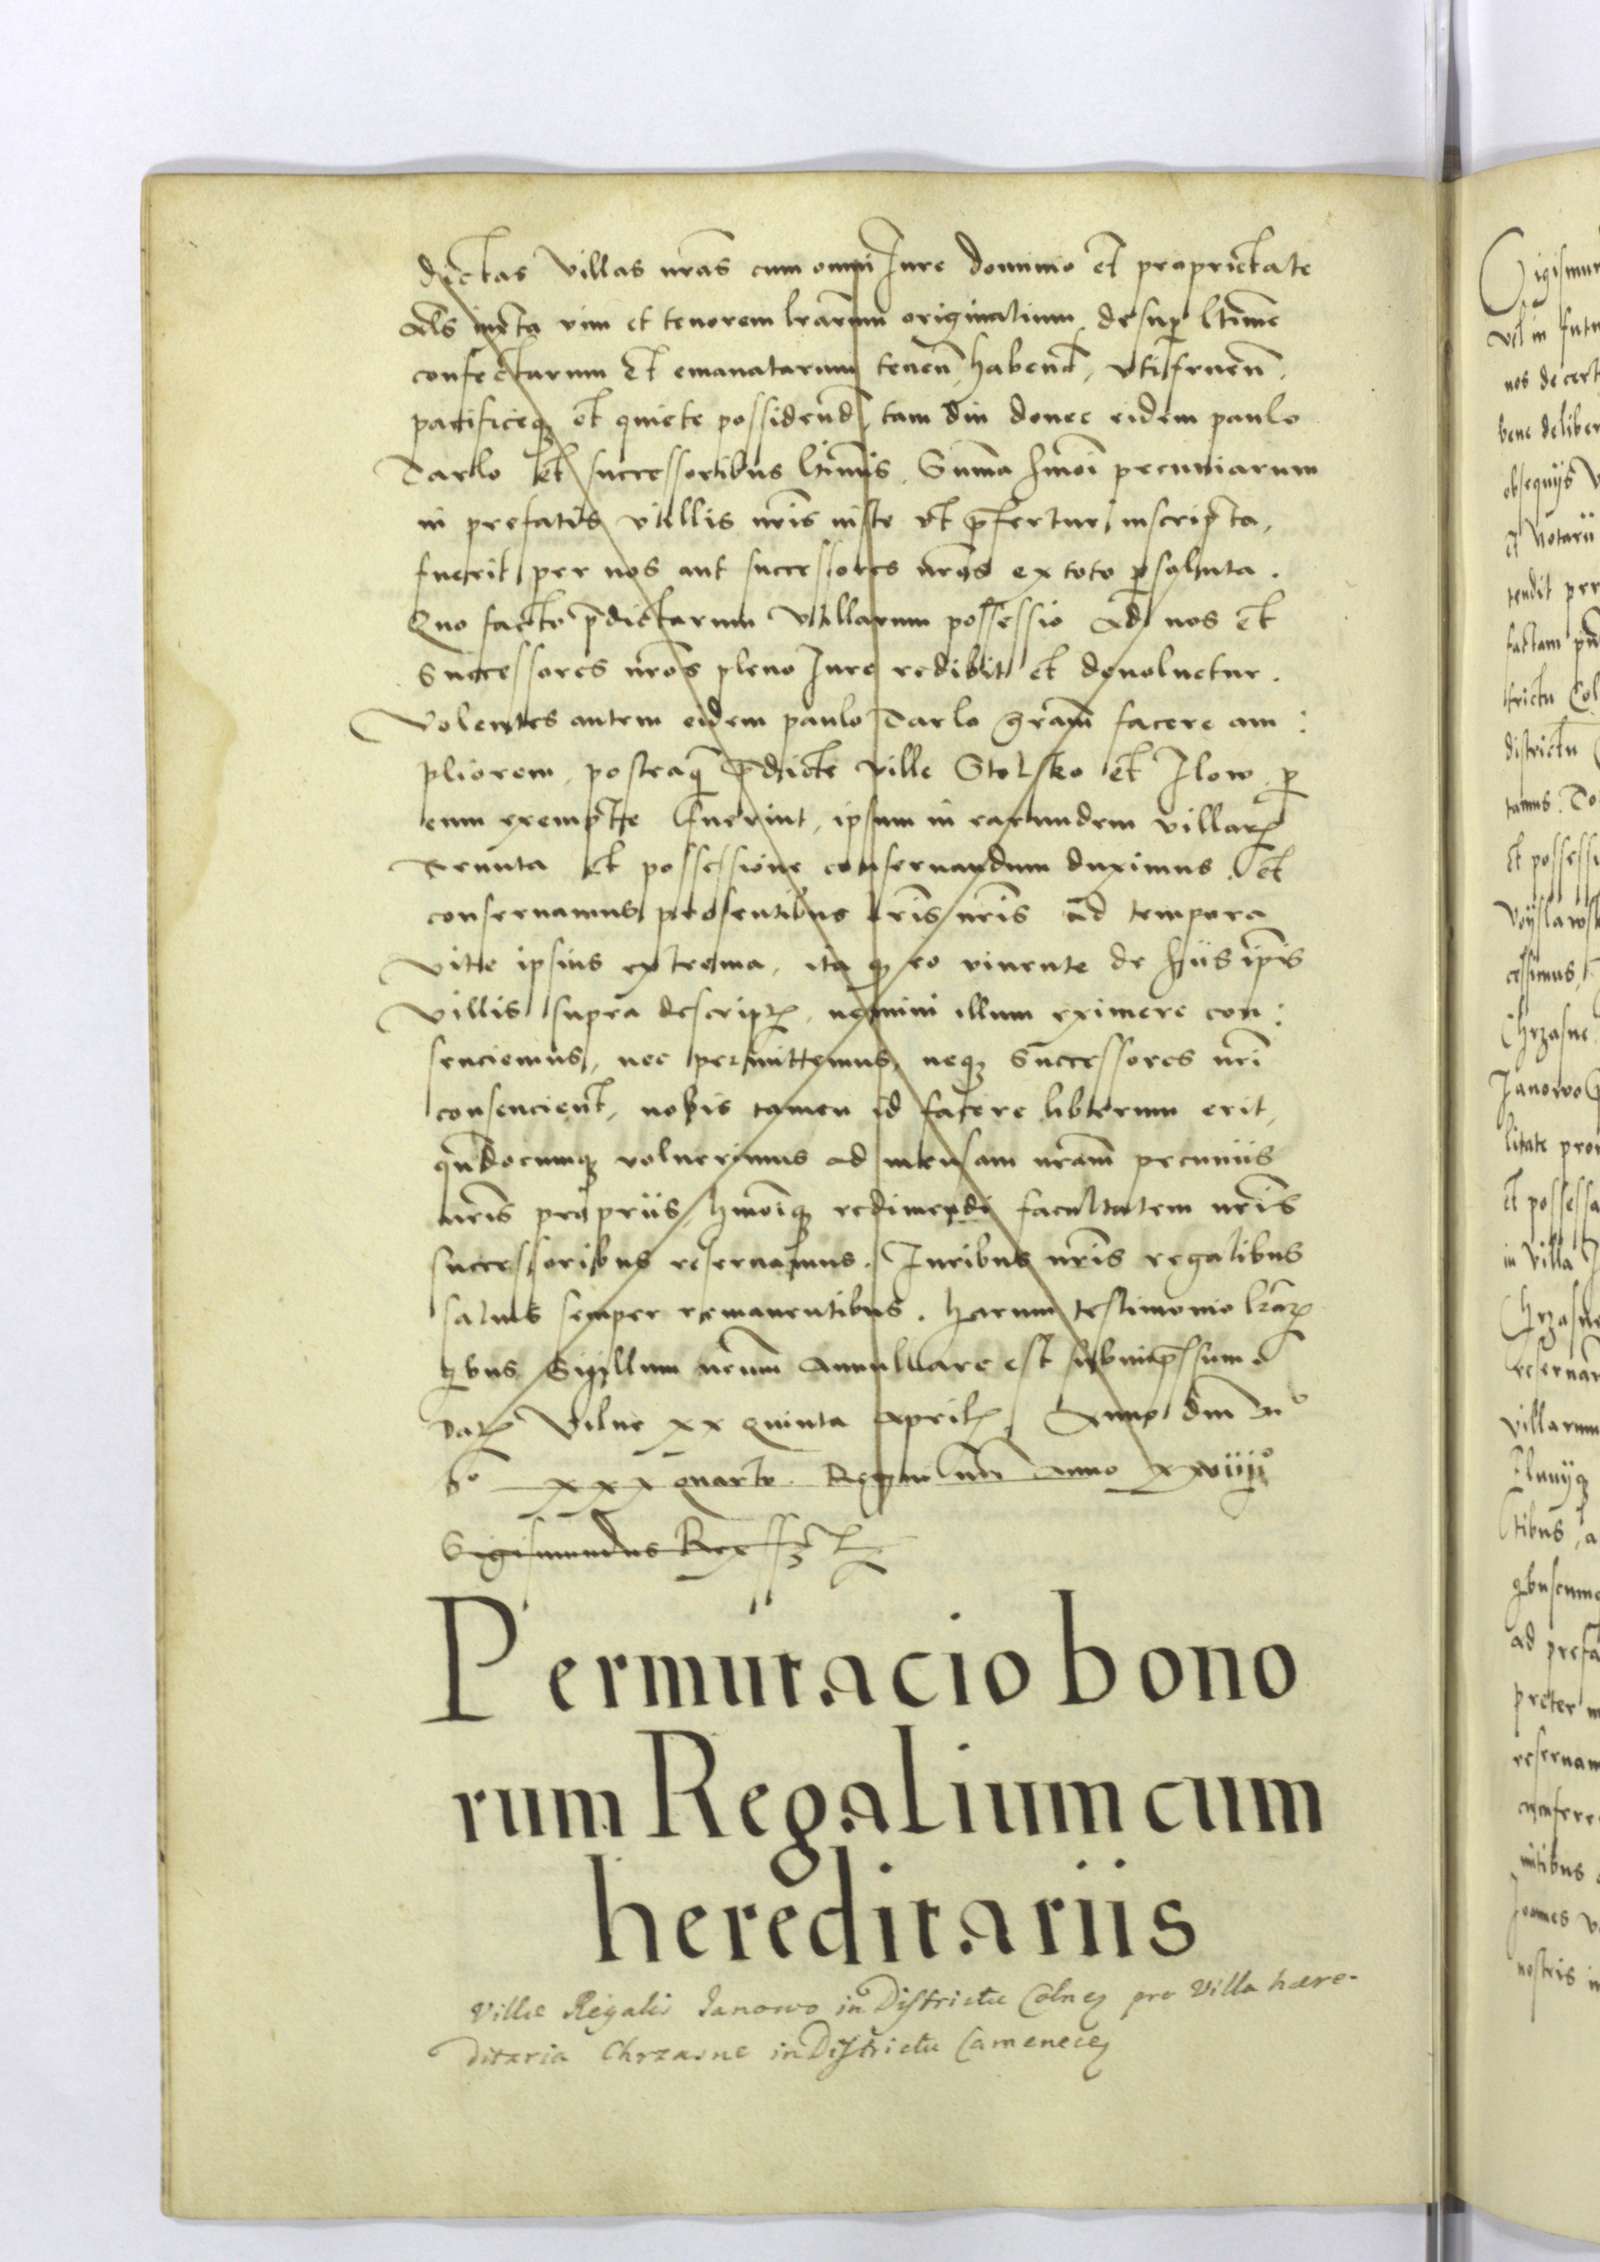 dictas villas nras cum omni Jure dominio et proprietate
als iuxta vim et tenorem lrarum originalium desup ltime
confectarum Et emanatarum tenen, habend, vtifruen,
pacificeq et quiete possidend, tam diu donec eidem paulo
Tarlo et successoribus ltimis. Summa hmoi pecuniarum
in prefatis villis nris iuste vt prefertur inscripta,
fuerit per nos aut successores nros ex toto psoluta.
Quo facto pdictarum villarum possessio ad nos et
Successores nros pleno Jure redibit et devoluetur.
Volentes autem eidem paulo Tarlo gram facere am:
pliorem, posteaq pdicte ville Stolsko et Ilow p
eum exempte fuerint, ipsum in earumdem villar
Tenuta et possessione conservandum duximus, et
conservamus presentibus lris nris ad tempora
vite ipsius extrema, ita q eo vivente de hiis ipis
villis supra descript, nemini illum eximere con:
senciemus, nec permittemus, neq Successores nri
consencient, nobis tamen id facere liberum erit,
quandocumq voluerimus ad mensam nram pecuniis
nris propriis, hmoiq redimendi facultatem nris
successoribus reservamus. Juribus nris regalibus
salvis semper remanentibus. Harum testimonio lrar
qbus Sigillum nrum Annullare est subimpressum.
Dat Vilne xx quinta Aprilis, Anno dni M°
d° xxx quarto. Regni nri Anno xxviii°
Sigismundus Rex sst
Permutacio bono
rum Regalium cum
hereditariis
Villae Regalis Janowo in Districtu Colnen pro Villa haere-
ditaria Chrzasne in Districtu Camenecen
Sigismun
vel in futu
nos de cert
bene deliber
obsequiis
et Notarii
tendit per
factam
strictu Col
districtu
tamus.
Et possessi
Voyslawsk
cessimus,
Chrzasne
Janowo
litate pro
et possessa
in villa
Chrzasne
reservam
villarum
fluviiq
tibus, a
qbuscumq
ad prefa
preter
reservam
conferre
mitibus
Joannes
nostris in